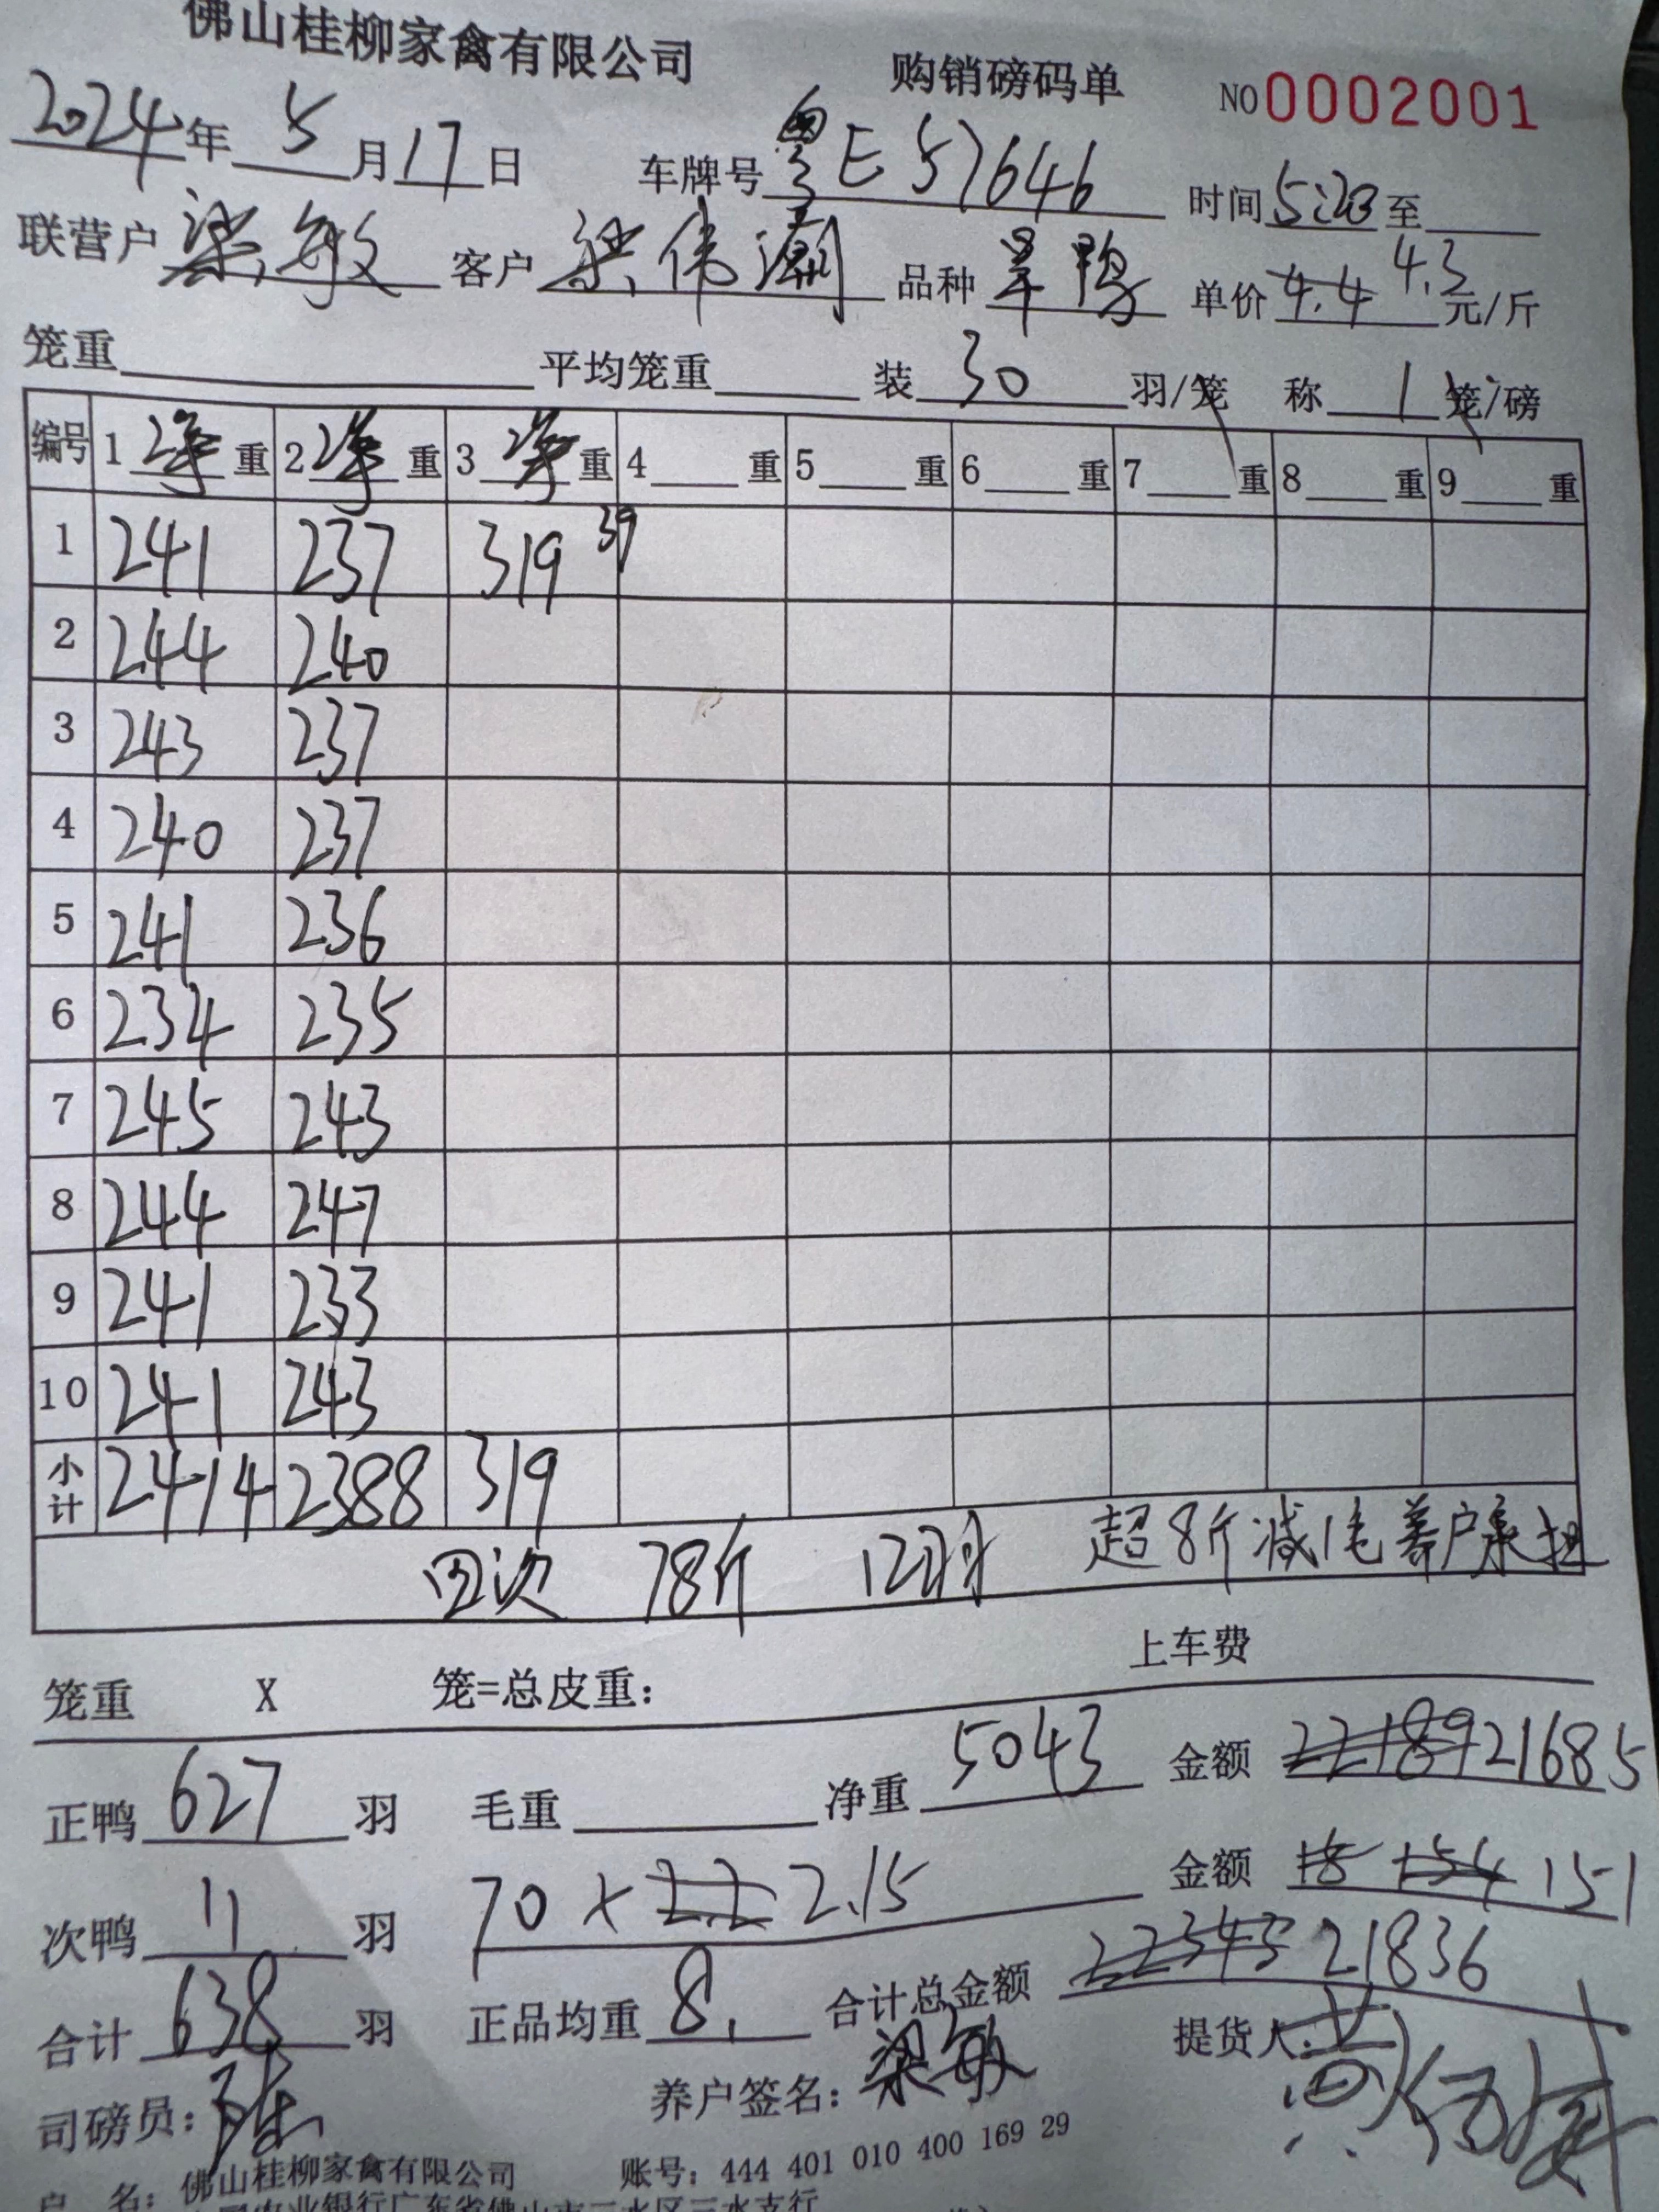 佛山桂柳家禽有限公司 购销磅码单 NO 0002001
2024年 5月17日 车牌号 粤E57646 时间 5:20 至
联营户 梁敏 客户 梁伟潮 品种 旱鸭 单价 4.4 4.3 元/斤
笼重 平均笼重 装 30 羽/笼 称 1 笼/磅
编号 1 净 重 2 净 重 3 净 重 4 重 5 重 6 重 7 重 8 重 9 重
1 241 237 319 39
2 244 240
3 243 237
4 240 237
5 241 236
6 234 235
7 245 243
8 244 247
9 241 233
10 241 243
小计 2414 2388 319
回次 78斤 12羽 超8斤减1毛养户承担
上车费
笼重 X 笼=总皮重：
正鸭 627 羽 毛重 净重 5043 金额 22189 21685
次鸭 11 羽 70 x 2.2 2.15 金额 18 154 151
合计 638 羽 正品均重 8. 合计总金额 22343 21836
司磅员： 陈 养户签名： 梁敏 提货人：
户 名：佛山桂柳家禽有限公司 账号：444 401 010 400 169 29
农业银行广东省佛山市三水区三水支行